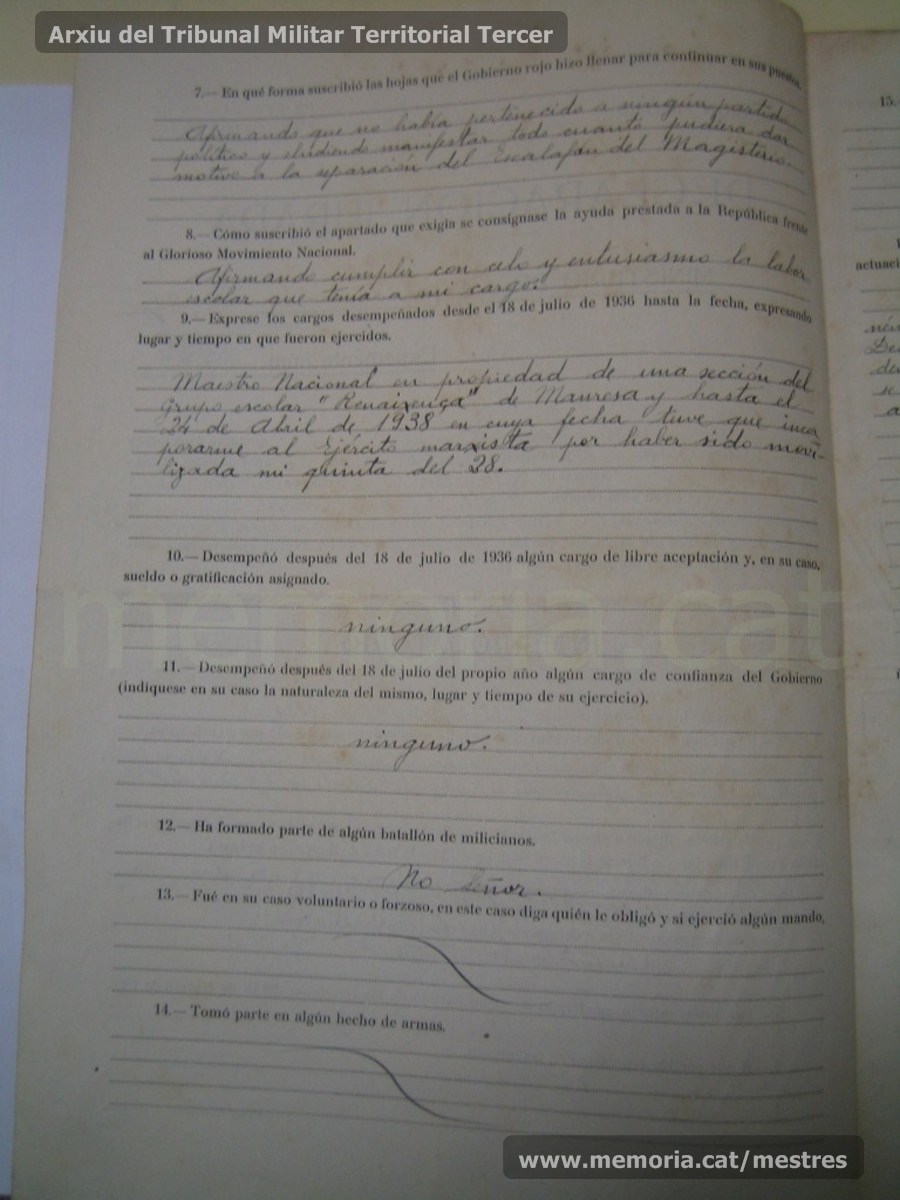 Arxiu del Tribunal Militar Territorial Tercer
7.— En qué forma suscribió las hojas que el Gobierno rojo hizo llenar para continuar en sus puestos.
Afirmando que no había pertenecido a ningún partido
político y eludiendo manifestar todo cuanto pudiera dar
motivo a la separación del Escalafón del Magisterio.
8.— Cómo suscribió el apartado que exigía se consignase la ayuda prestada a la República frente
al Glorioso Movimiento Nacional.
Afirmando cumplir con celo y entusiasmo la labor
escolar que tenía a mi cargo.
9.— Exprese los cargos desempeñados desde el 18 de julio de 1936 hasta la fecha, expresando
lugar y tiempo en que fueron ejercidos.
Maestro Nacional en propiedad de una sección del
Grupo escolar "Renaixença" de Manresa y hasta el
24 de Abril de 1938 en cuya fecha tuve que inco
porarme al Ejército marxista por haber sido movi-
lizada mi quinta del 28.
10.— Desempeñó después del 18 de julio de 1936 algún cargo de libre aceptación y, en su caso,
sueldo o gratificación asignado.
memoria.cat
ninguno.
11.— Desempeñó después del 18 de julio del propio año algún cargo de confianza del Gobierno
(indíquese en su caso la naturaleza del mismo, lugar y tiempo de su ejercicio).
ninguno.
12.— Ha formado parte de algún batallón de milicianos.
No señor.
13.— Fué en su caso voluntario o forzoso, en este caso diga quién le obligó y si ejerció algún mando.
14.— Tomó parte en algún hecho de armas.
15.
actuaci
www.memoria.cat/mestres